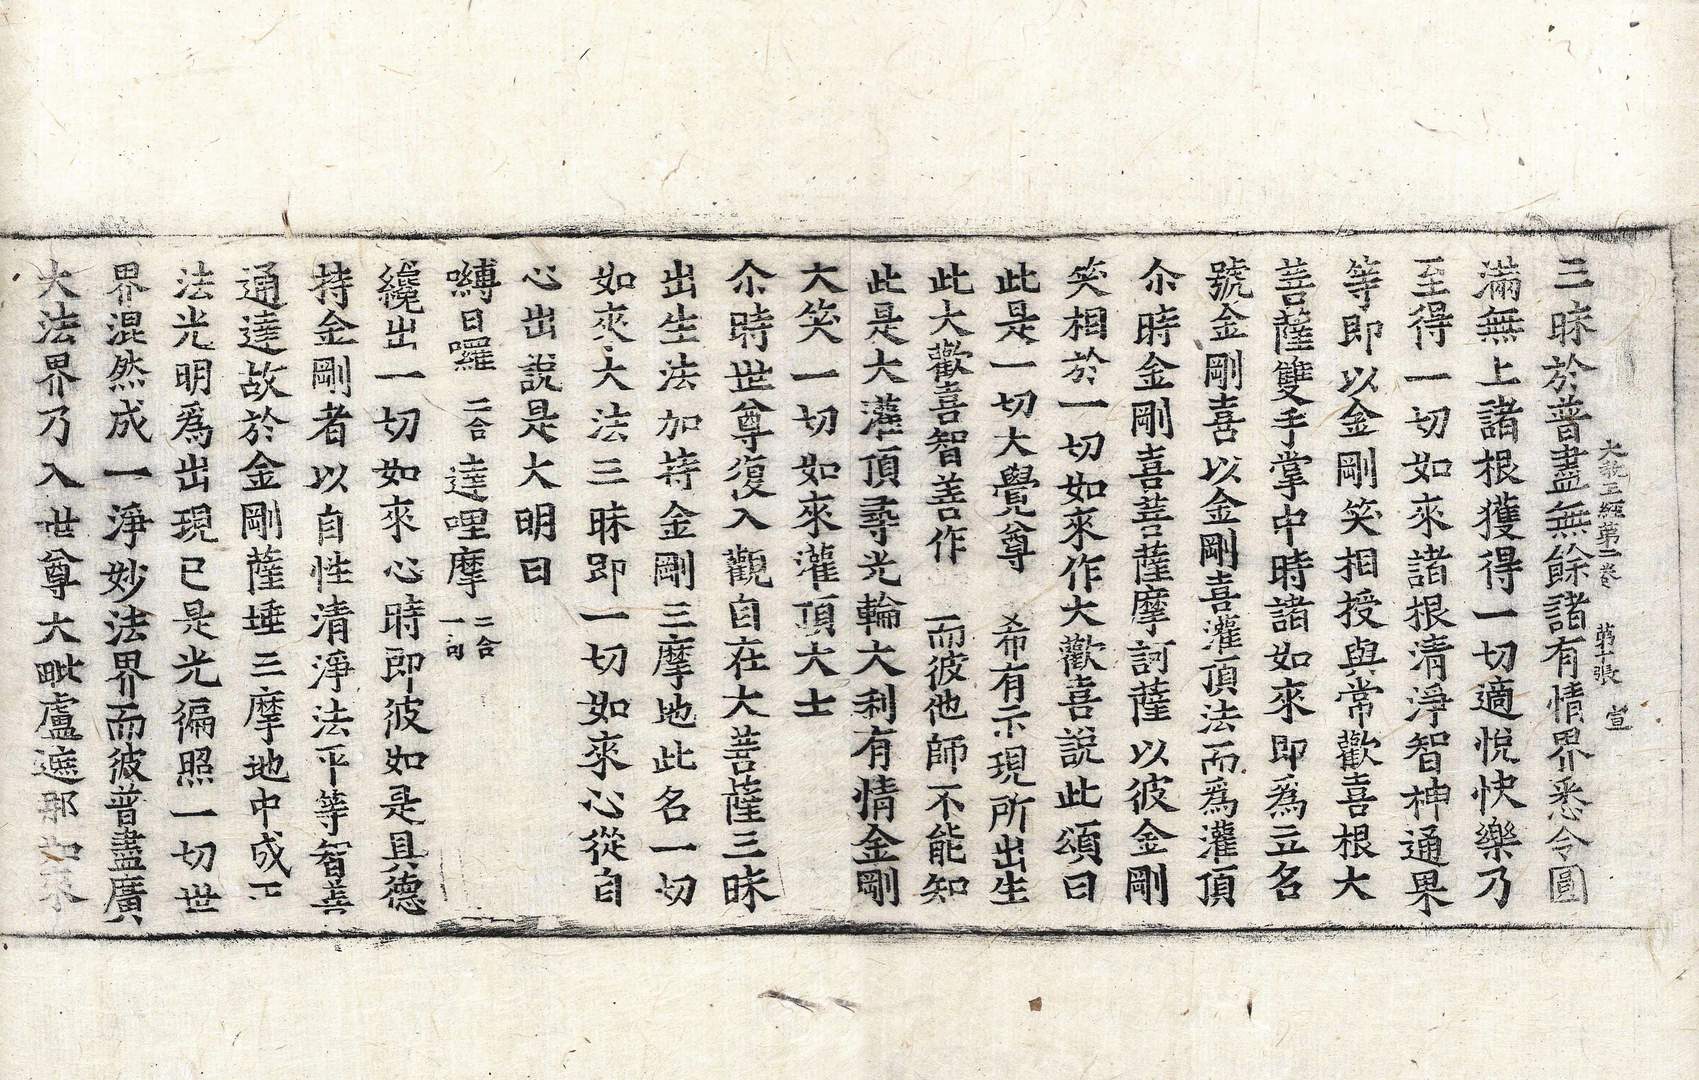 大敎王經第二卷 第十張 宣
三昧於普盡無餘諸有情界悉令圓
滿無上諸根獲得一切適悅快樂乃
至得一切如來諸根清淨智神通果
等即以金剛笑相授與常歡喜根大
菩薩雙手掌中時諸如來即爲立名
號金剛喜以金剛喜灌頂法而爲灌頂
尒時金剛喜菩薩摩訶薩以彼金剛
笑相於一切如來作大歡喜說此頌曰
此是一切大覺尊 希有示現所出生
此大歡喜智善作 而彼他師不能知
此是大灌頂尋光輪大利有情金剛
大笑一切如來灌頂大士
尒時世尊復入觀自在大菩薩三昧
出生法加持金剛三摩地此名一切
如來大法三昧即一切如來心從自
心出說是大明曰
嚩日囉 二合 達哩摩 二合 一句
纔出一切如來心時即彼如是具德
持金剛者以自性清淨法平等智善
通達故於金剛薩埵三摩地中成正
法光明爲出現已是光徧照一切世
界混然成一淨妙法界而彼普盡廣
大法界乃入世尊大毗盧遮那如來